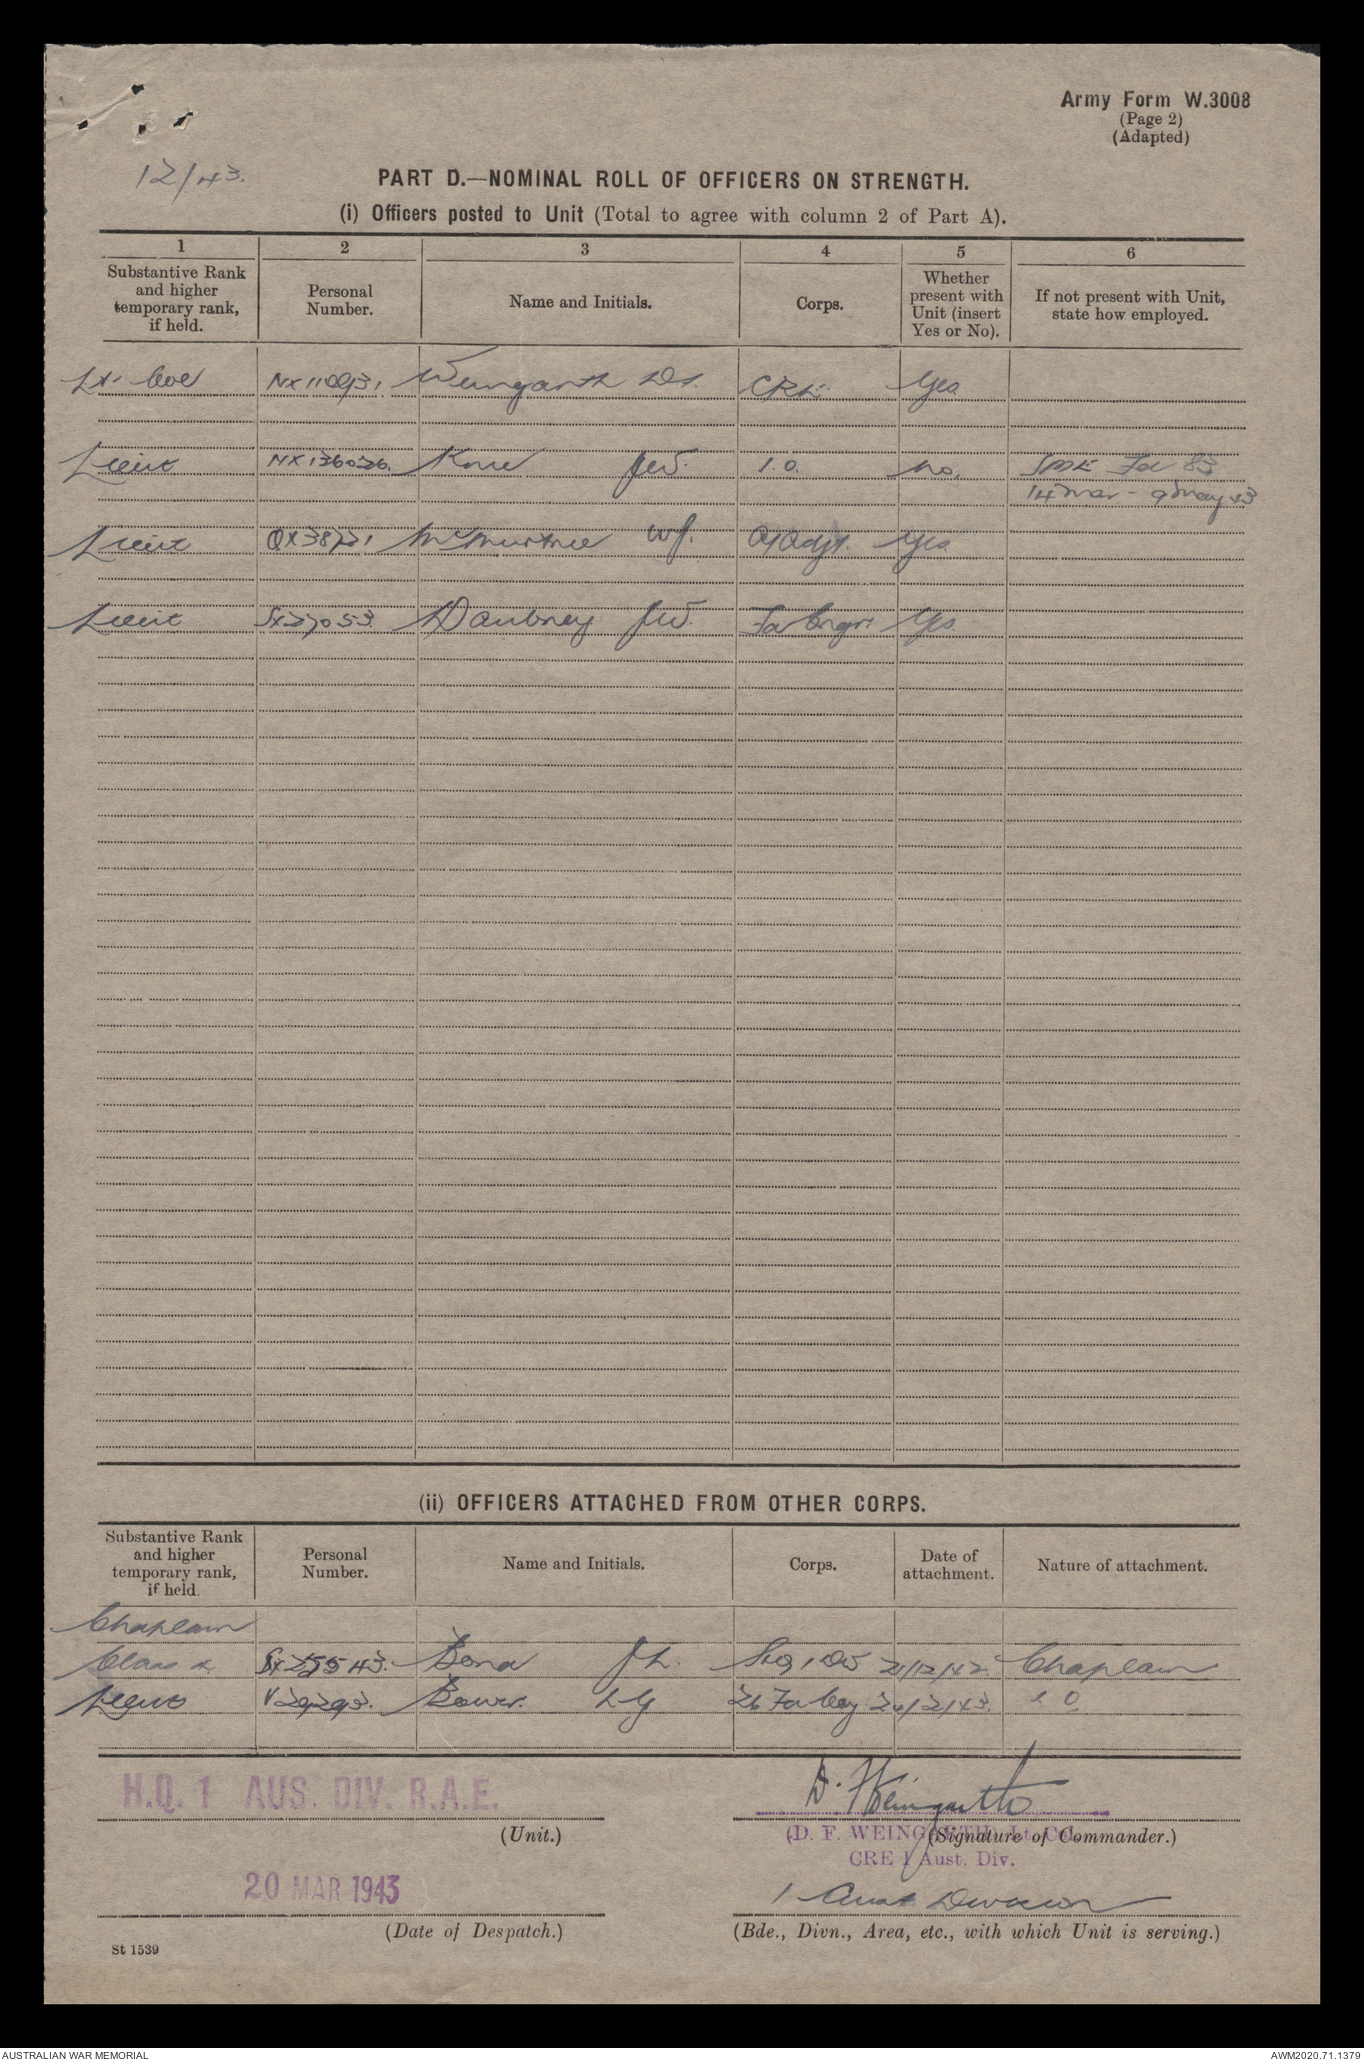 Army Form W.3008
(Page 2)
(Adapted)
12/43.
PART D.—NOMINAL ROLL OF OFFICERS ON STRENGTH.
(i) Officers posted to Unit (Total to agree with column 2 of Part A).
1 2 3 4 5 6
Substantive Rank and higher temporary rank, if held. Personal Number. Name and Initials. Corps. Whether present with Unit (insert Yes or No). If not present with Unit, state how employed.
Lt. Col Weingarth D.F. CRE Yes
Lieut NX136026 J.W. I.O. No. SME
14 Mar - 9 May 43
Lieut McMurtrie W.J. Yes
Lieut SX27053 Daubney J.W. Yes
(ii) OFFICERS ATTACHED FROM OTHER CORPS.
Substantive Rank and higher temporary rank, if held. Personal Number. Name and Initials. Corps. Date of attachment. Nature of attachment.
Chaplain
Class 4 SX25543. Bond J.L. 21/12/42. Chaplain
Lieut V29293. Bower. L G 26 Fd Coy 24/2/43. I O.
H.Q. 1 AUS. DIV. R.A.E. D. F Weingarth
(Unit.) (Signature of Commander.)
(D. F. WEINGARTH) Lt. Col.
CRE 1 Aust. Div.
20 MAR 1943 1 Aust Division
(Date of Despatch.) (Bde., Divn., Area, etc., with which Unit is serving.)
St 1539
AUSTRALIAN WAR MEMORIAL AWM2020.71.1379